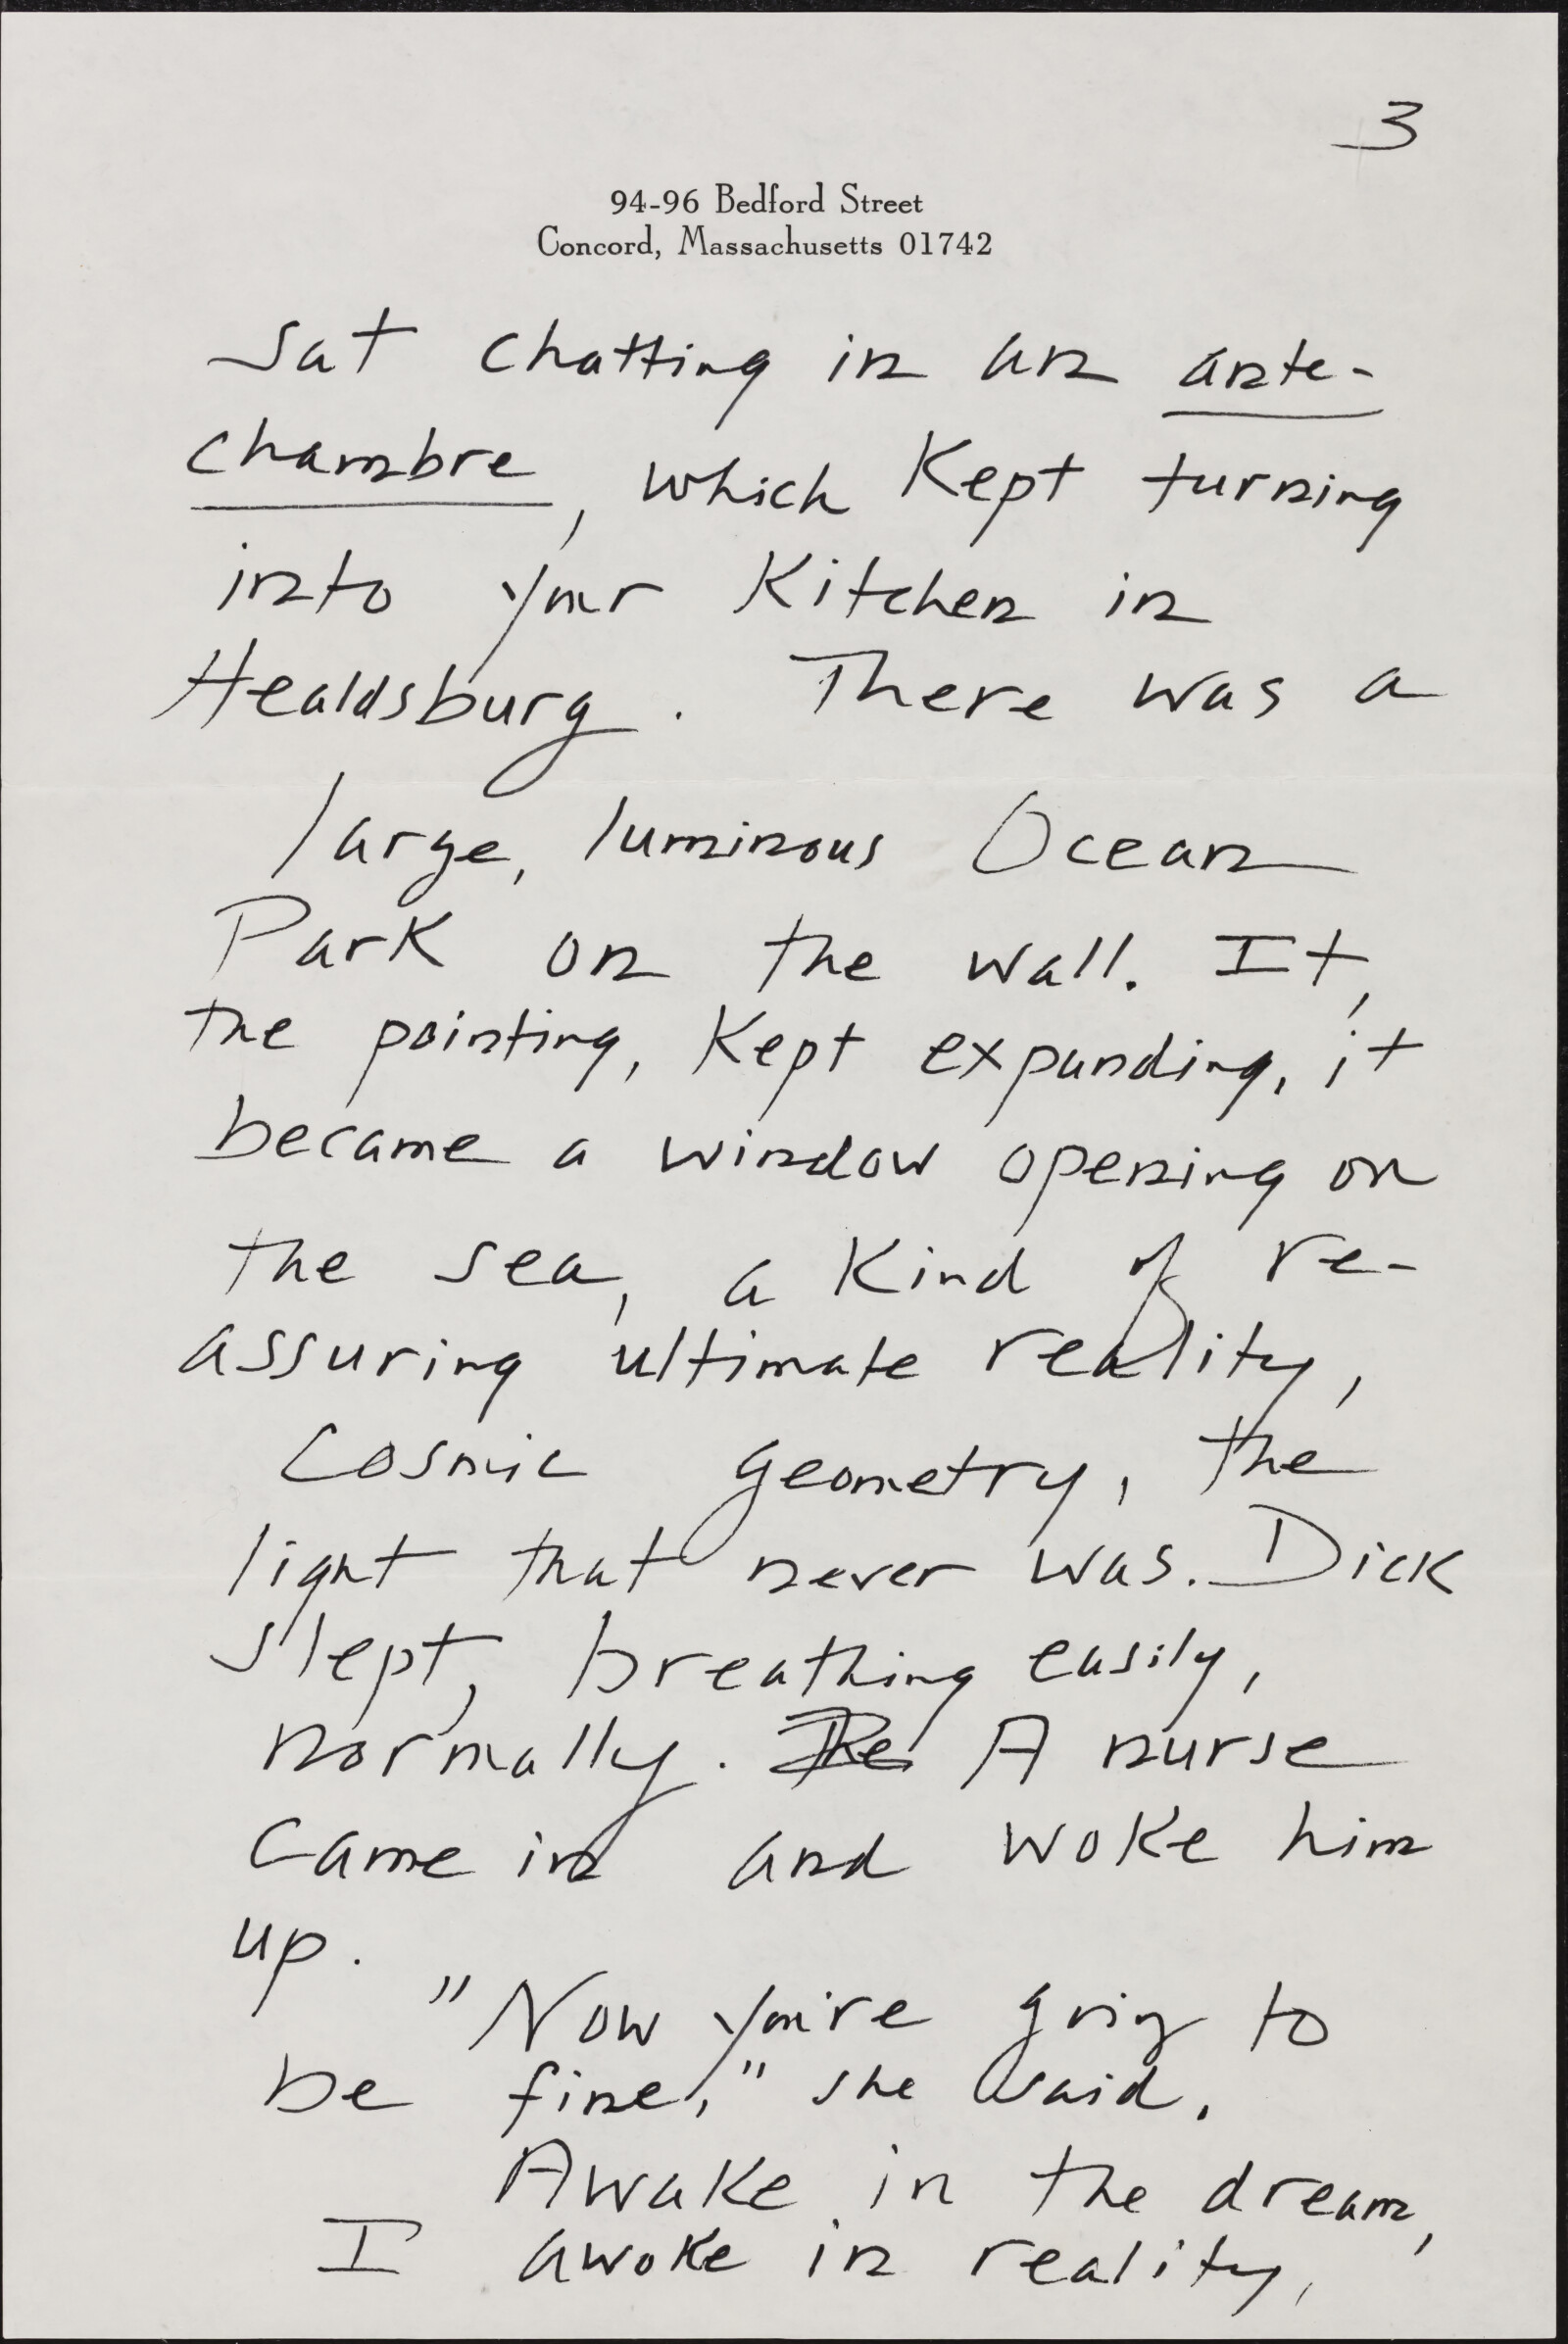 3
94-96 Bedford Street
Concord, Massachusetts 01742
sat chatting in an ante-
chambre, which kept turning
into your kitchen in
Healdsburg. There was a
large, luminous Ocean
Park on the wall. It,
the painting, kept expanding, it
became a window opening on
the sea, a kind of re-
assuring ultimate reality,
cosmic geometry, the
light that never was. Dick
slept, breathing easily,
normally. The A nurse
came in and woke him
up.
"Now you're going to
be fine," she said.
Awake in the dream,
I awoke in reality,